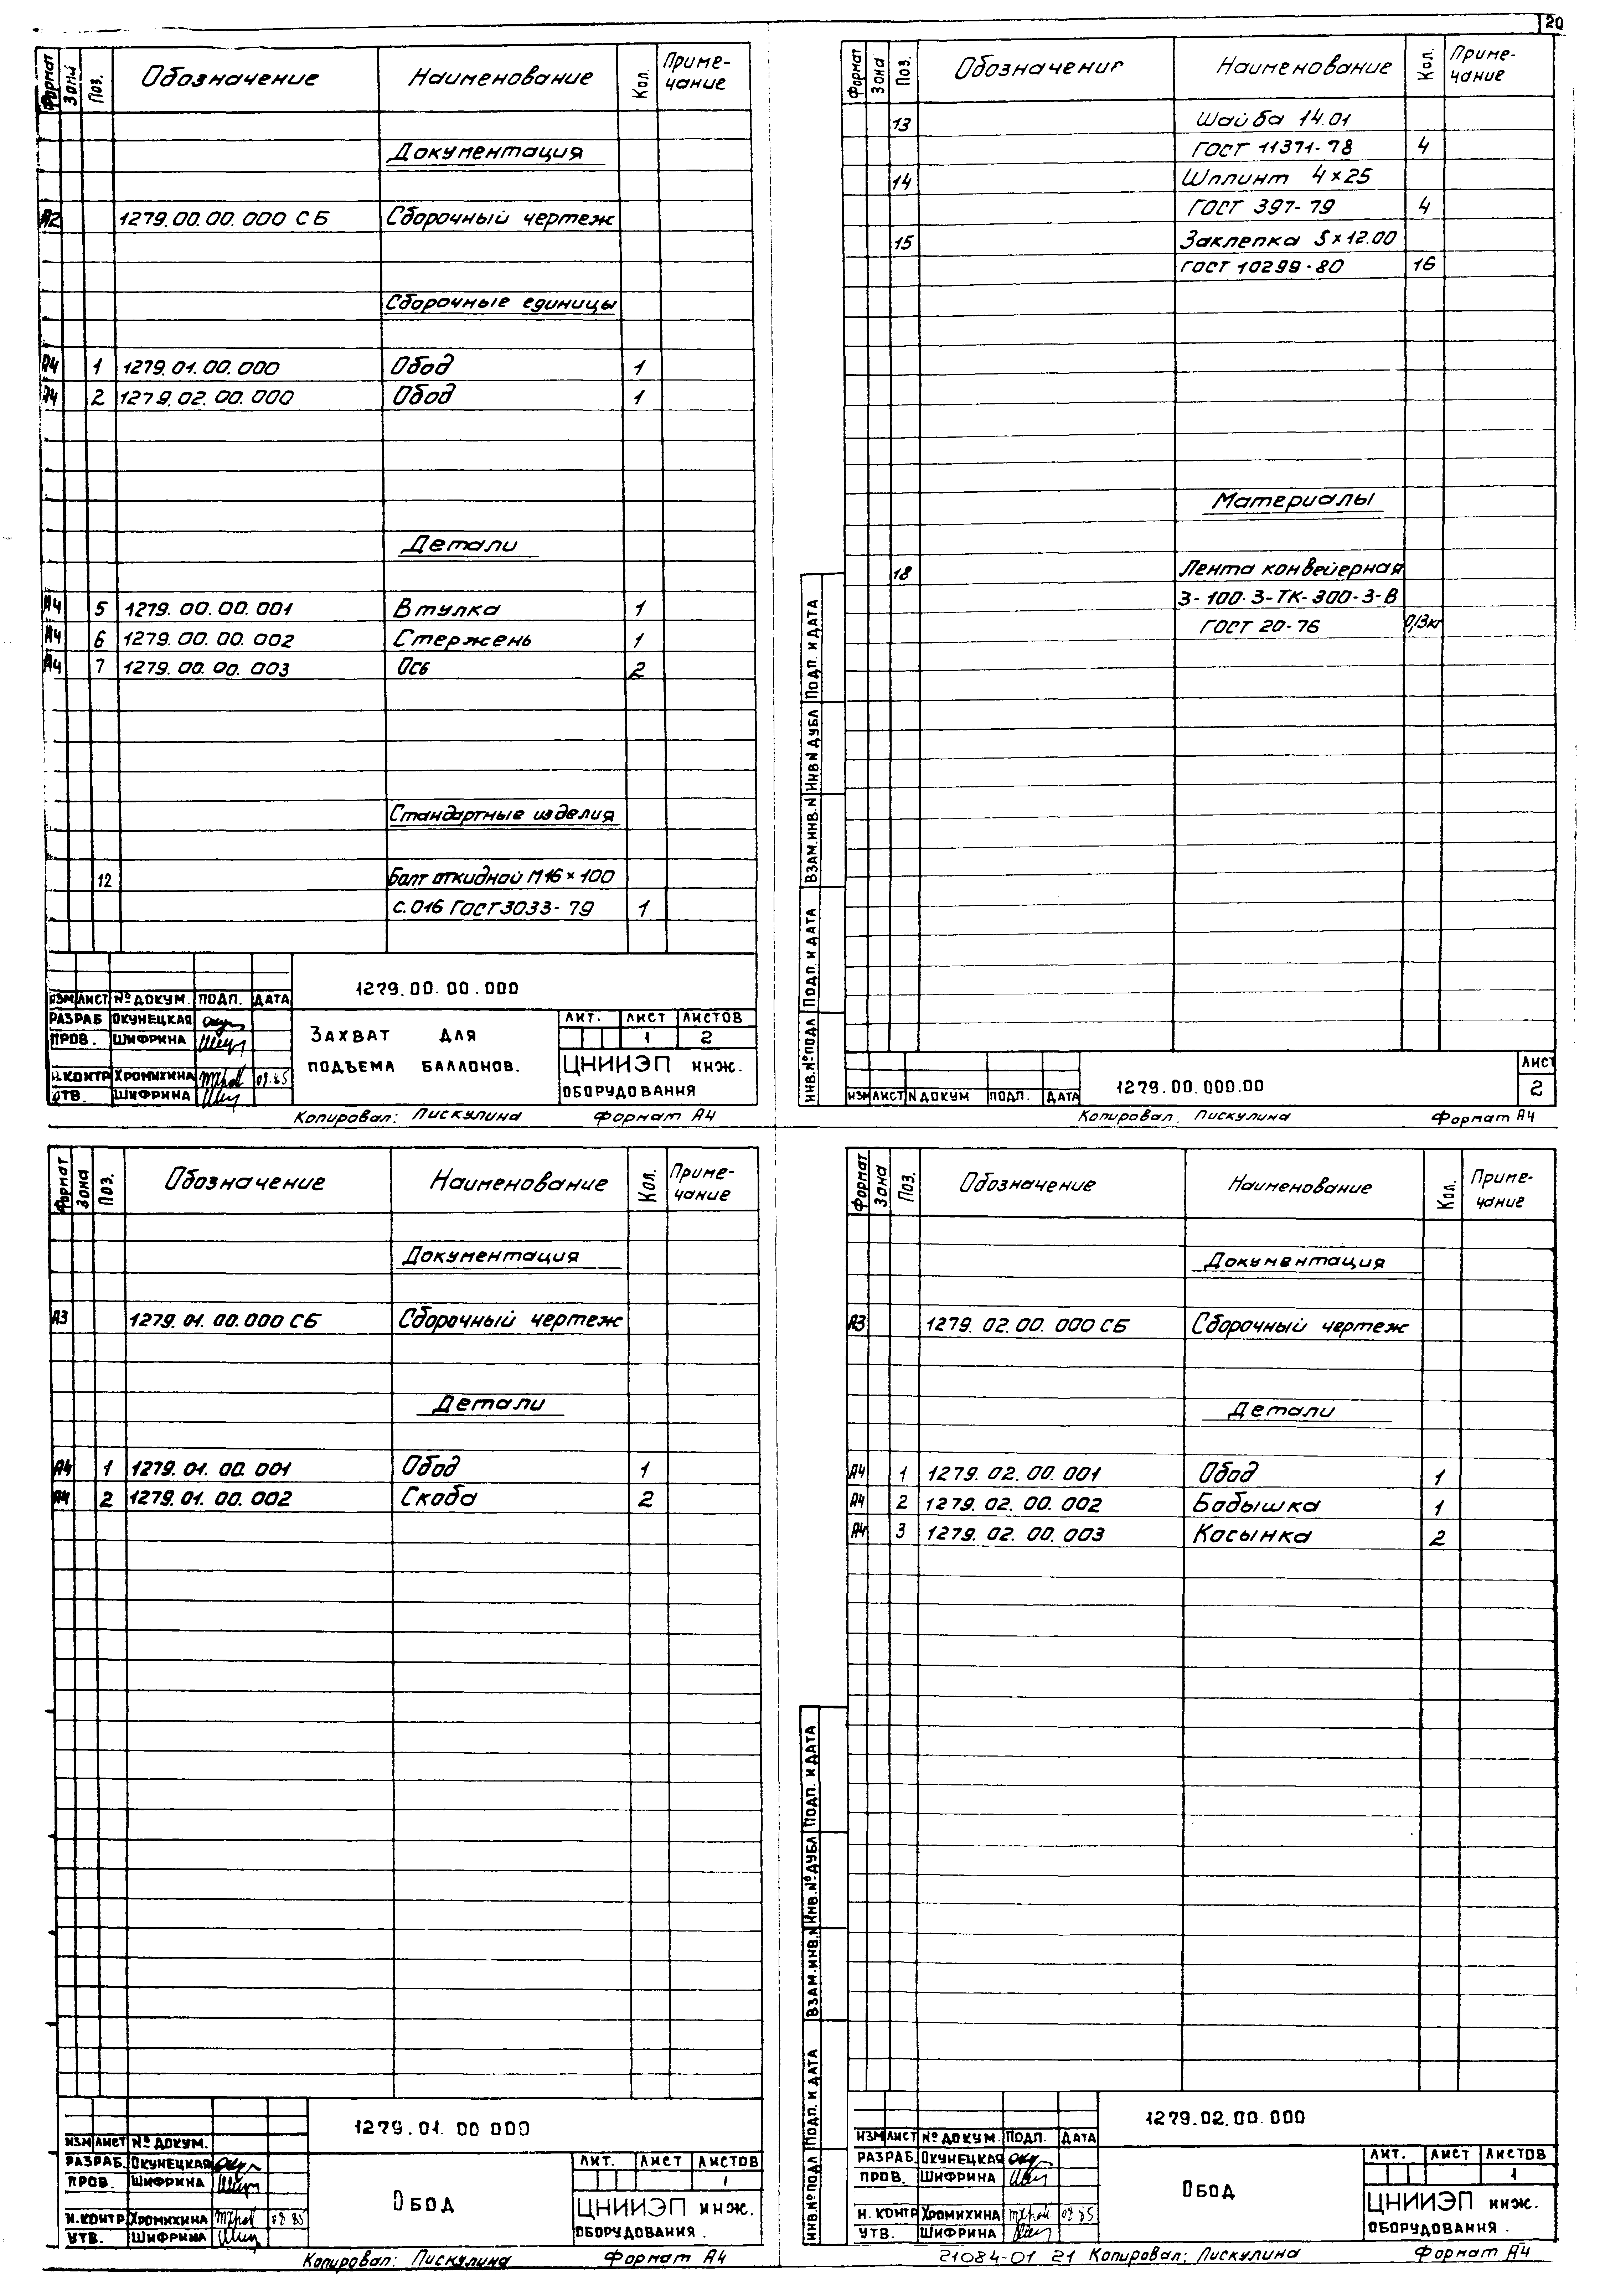 20
Формат Зона Поз. Обозначение Наименование Кол. Приме-
чание
Документация
А2 1279.00.00.000 СБ Сборочный чертеж
Сборочные единицы
А4 1 1279.01.00.000 Обод 1
А4 2 1279.02.00.000 Обод 1
Детали
А4 5 1279.00.00.001 Втулка 1
А4 6 1279.00.00.002 Стержень 1
А4 7 1279.00.00.003 Ось 2
Стандартные изделия
12 Болт откидной М16×100
с.016 ГОСТ 3033-79 1
1279.00.00.000
ИЗМ ЛИСТ № ДОКУМ. ПОДП. ДАТА
РАЗРАБ ОКУНЕЦКАЯ
ПРОВ. ШИФРИНА
Н.КОНТР ХРОМИХИНА 09.85
УТВ. ШИФРИНА
ЗАХВАТ ДЛЯ
ПОДЪЕМА БАЛЛОНОВ.
ЛИТ. ЛИСТ ЛИСТОВ
1 2
ЦНИИЭП инж.
ОБОРУДОВАНИЯ
Копировал: Пискулина Формат А4
Формат Зона Поз. Обозначение Наименование Кол. Приме-
чание
13 Шайба 14.01
ГОСТ 11371-78 4
14 Шплинт 4×25
ГОСТ 397-79 4
15 Заклепка 5×12.00
ГОСТ 10299-80 16
Материалы
18 Лента конвейерная
3-100-3-ТК-300-3-В
ГОСТ 20-76 0,13кг
ИНВ.№ ПОДЛ ПОДП. И ДАТА ВЗАМ.ИНВ.N ИНВ N ДУБЛ ПОДП. И ДАТА
ИЗМ ЛИСТ N ДОКУМ ПОДП. ДАТА
1279.00.000.00
ЛИСТ
2
Копировал: Пискулина Формат А4
Формат Зона Поз. Обозначение Наименование Кол. Приме-
чание
Документация
А3 1279.01.00.000 СБ Сборочный чертеж
Детали
А4 1 1279.01.00.001 Обод 1
А4 2 1279.01.00.002 Скоба 2
1279.01.00 000
ИЗМ ЛИСТ № ДОКУМ.
РАЗРАБ. ОКУНЕЦКАЯ
ПРОВ. ШИФРИНА
Н.КОНТР ХРОМИХИНА 09 85
УТВ. ШИФРИНА
ОБОД
ЛИТ. ЛИСТ ЛИСТОВ
1
ЦНИИЭП инж.
ОБОРУДОВАНИЯ.
Копировал: Пискулина Формат А4
Формат Зона Поз. Обозначение Наименование Кол. Приме-
чание
Документация
А3 1279.02.00.000 СБ Сборочный чертеж
Детали
А4 1 1279.02.00.001 Обод 1
А4 2 1279.02.00.002 Бобышка 1
А4 3 1279.02.00.003 Косынка 2
ИНВ.№ ПОДЛ ПОДП. И ДАТА ВЗАМ.ИНВ.N ИНВ.№ ДУБЛ ПОДП. И ДАТА
1279.02.00.000
ИЗМ ЛИСТ № ДОКУМ. ПОДП. ДАТА
РАЗРАБ. ОКУНЕЦКАЯ
ПРОВ. ШИФРИНА
Н.КОНТР ХРОМИХИНА 09 85
УТВ. ШИФРИНА
ОБОД
ЛИТ. ЛИСТ ЛИСТОВ
1
ЦНИИЭП инж.
ОБОРУДОВАНИЯ.
21084-01 21 Копировал: Пискулина Формат А4